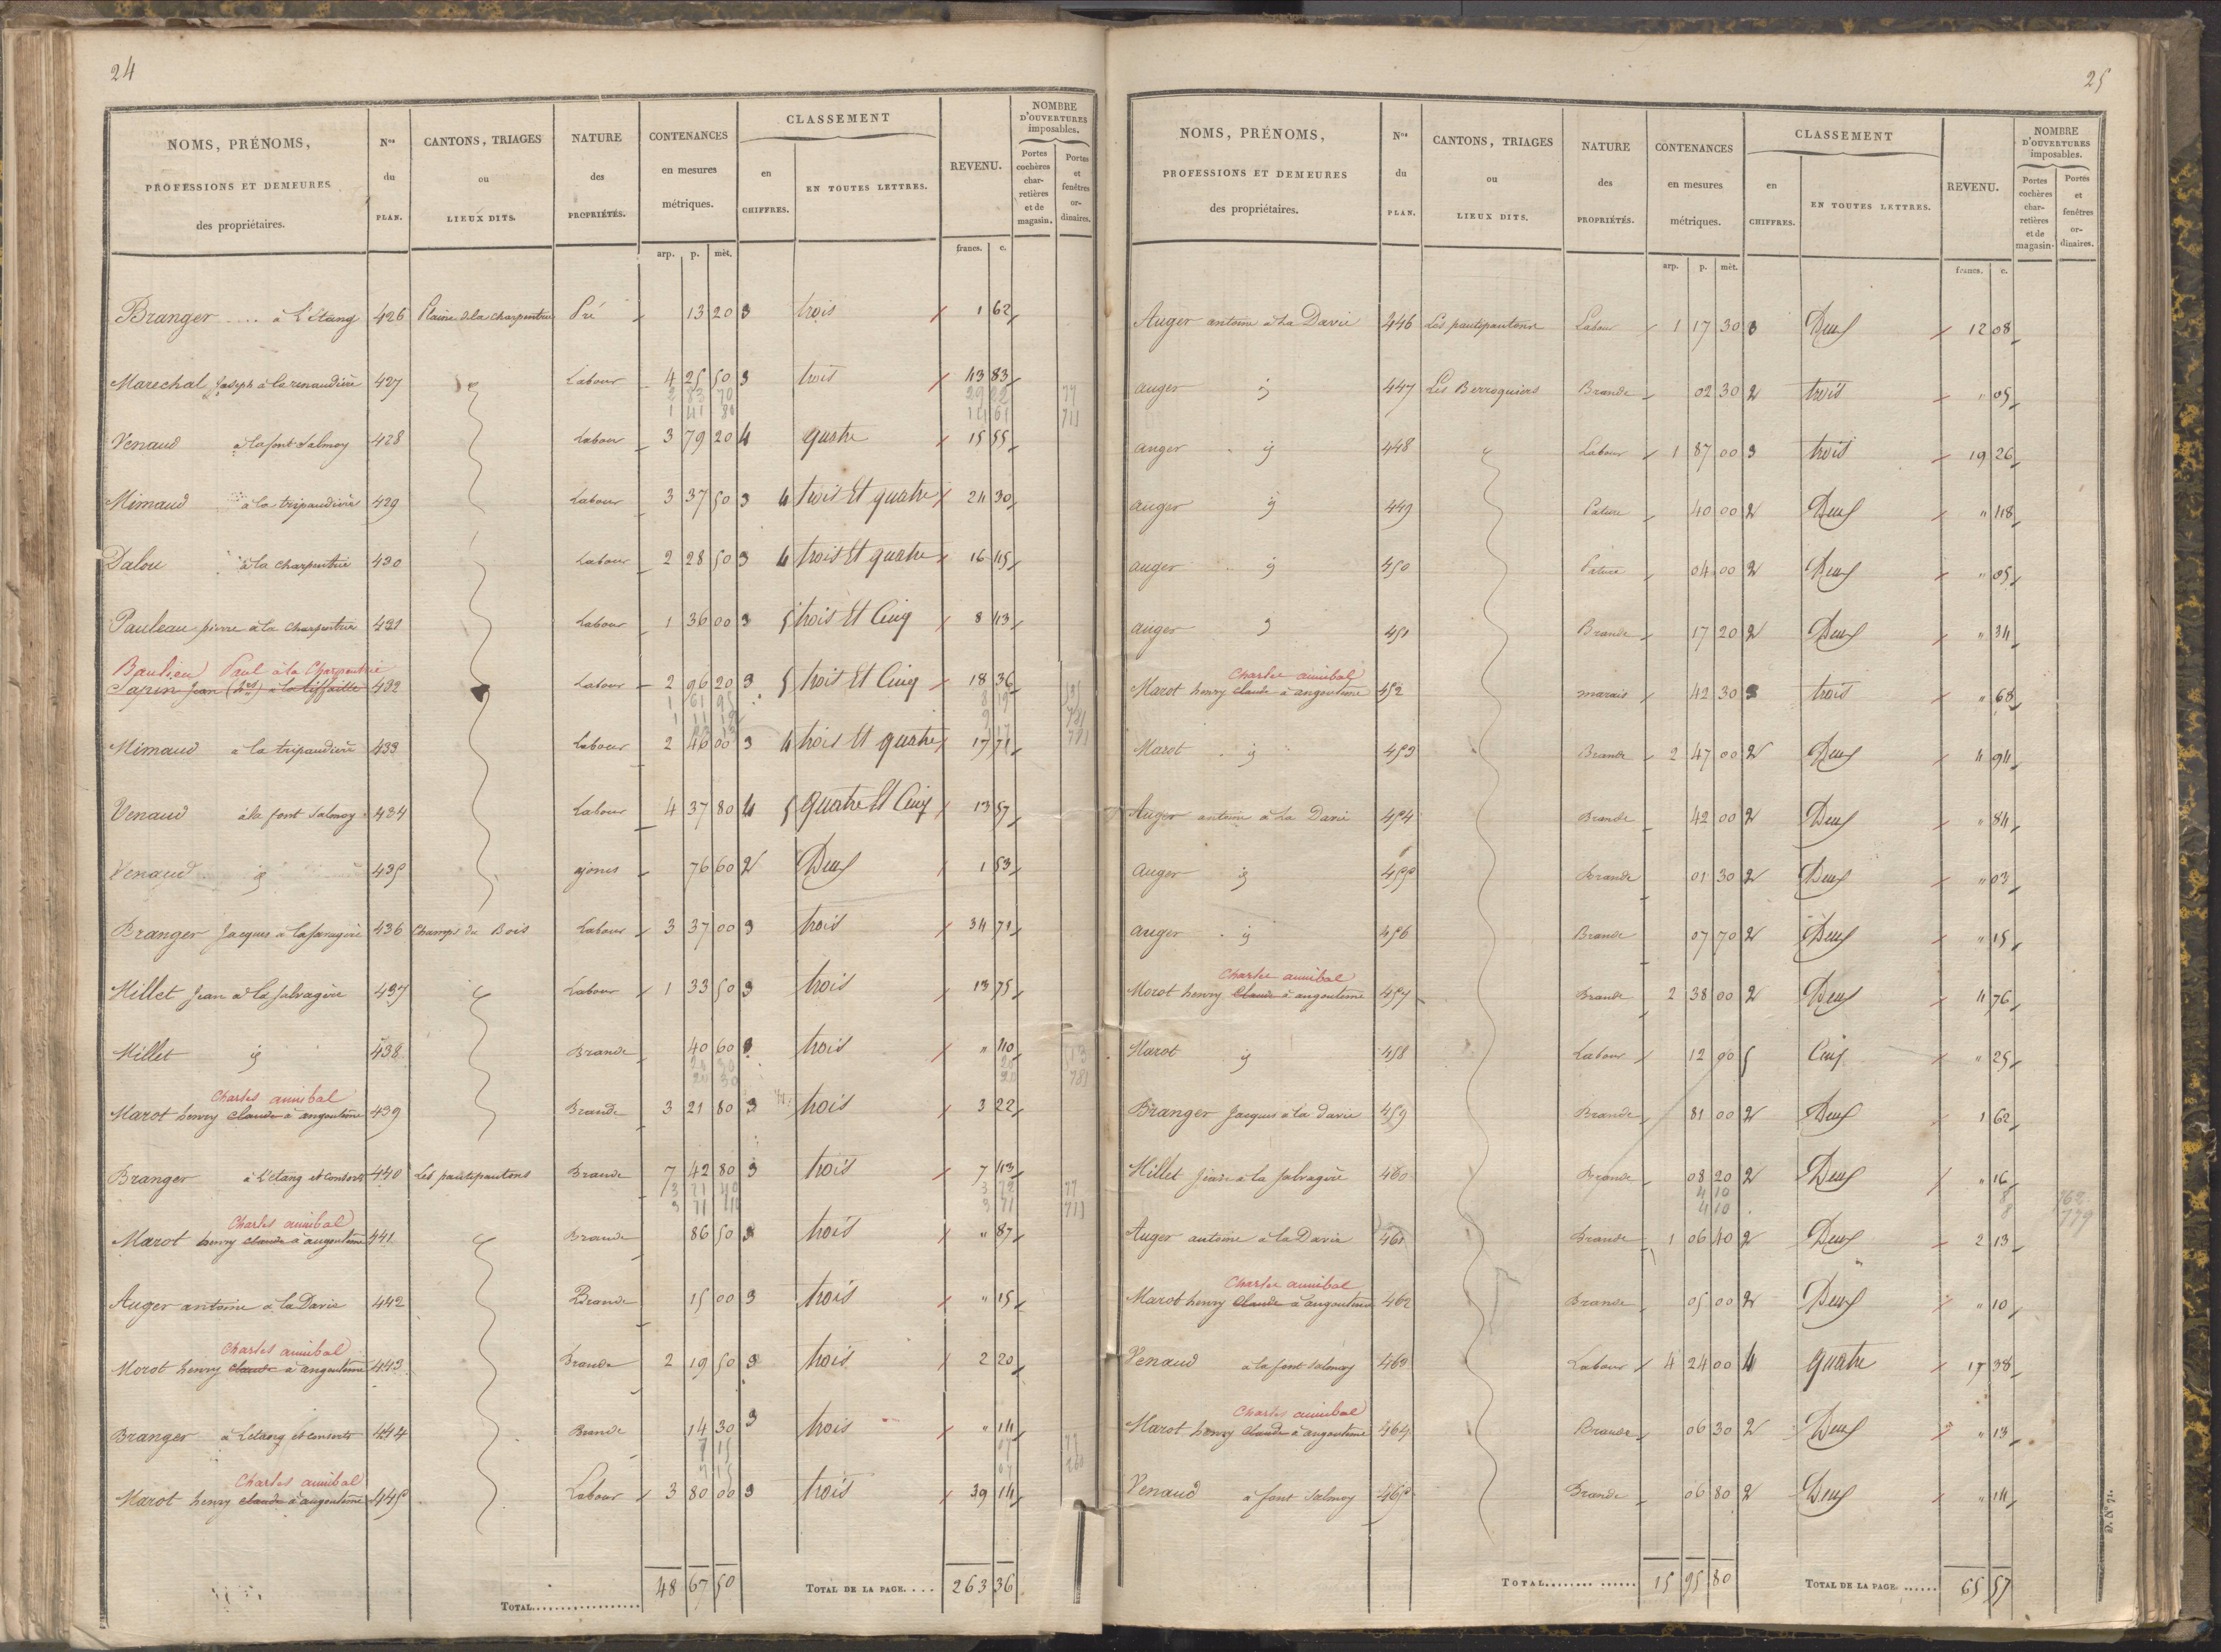 24
NOMS, PRÉNOMS, PROFESSIONS ET DEMEURES des propriétaires. | Nos du PLAN. | CANTONS, TRIAGES ou LIEUX DITS. | NATURE des PROPRIÉTÉS. | CONTENANCES en mesures métriques. arp. p. mèt. | CLASSEMENT en CHIFFRES. EN TOUTES LETTRES. | REVENU. francs. c. | NOMBRE D'OUVERTURES imposables. Portes cochères charretières et de magasin. Portes et fenêtres ordinaires.
Branger .... à L'étang 426 Plaine de la charpentrie Pré 13 20 3 trois 1 62
Marechal Joseph à la renaudière 427 id Labour 4 25 50 3 trois 43 83
2 83 70 29 22 77
1 41 80 14 61 711
Venaud à la font Salmoy 428 Labour 3 79 20 4 quatre 15 55
Mimaud à la tripaudière 429 Labour 3 37 50 3 4 trois Et quatre 24 30
Dalou à la charpentrie 430 Labour 2 28 50 3 4 trois Et quatre 16 45
Pauleau pierre à la Charpentrie 431 Labour 1 36 00 3 5 trois Et Cinq 8 43
Baulieu Paul à la Charpentrie
Sapin Jean à la tiffaille 432 Labour 2 96 20 3 5 trois Et Cinq 18 36
Mimaud a la tripaudière 433 Labour 2 46 00 3 4 trois Et quatre 17 71
Venaud à la font Salmoy 434 Labour 4 37 80 4 5 quatre Et Cinq 13 57
Venaud id 435 ajoncs 76 60 2 Deux 1 53
Branger Jacques à la Savagère 436 Champs du Bois Labour 3 37 00 3 trois 34 71
Millet Jean à la Salvagère 437 id Labour 1 33 50 3 trois 13 75
Millet id 438 Brande 40 60 3 trois " 40
20 30 20
20 30 20 781
Charles annibal
Marot henry claude à angoulême 439 Brande 3 21 80 3 trois 3 22
Branger à L'étang et Consorts 440 Les pautipautons Brande 7 42 80 3 trois 7 43
3 71 40 3 72 77
3 71 40 3 71 711
Charles annibal
Marot henry claude à angoulême 441 id Brande 86 50 3 trois " 87
Auger antoine a la Davie 442 Brande 15 00 3 trois " 15
Charles annibal
Marot henry claude à angoulême 443 Brande 2 19 50 3 trois 2 20
Branger à Létang et consorts 444 Brande 14 30 3 trois " 14
7 15 07 77
7 15 07
Charles annibal
Marot henry claude à angoulême 445 Labour 3 80 00 3 trois 39 14
TOTAL 48 67 50 TOTAL DE LA PAGE.... 263 36
25
NOMS, PRÉNOMS, PROFESSIONS ET DEMEURES des propriétaires. | Nos du PLAN. | CANTONS, TRIAGES ou LIEUX DITS. | NATURE des PROPRIÉTÉS. | CONTENANCES en mesures métriques. arp. p. mèt. | CLASSEMENT en CHIFFRES. EN TOUTES LETTRES. | REVENU. francs. c. | NOMBRE D'OUVERTURES imposables. Portes cochères charretières et de magasin. Portes et fenêtres ordinaires.
Auger antoine à La Davie 446 Les pautipautons Labour 1 17 30 3 Deux 12 08
auger id 447 Les Berroquiers Brande 02 30 2 trois " 05
auger id 448 id Labour 1 87 00 3 trois 19 26
auger id 449 Pature 40 00 2 Deux " 48
auger id 450 Pature 04 00 2 Deux " 05
auger id 451 Brande 17 20 2 Deux " 34
Charles annibal
Marot henry claude à angoulême 452 marais 42 30 3 trois " 68
Marot id 453 Brande 2 47 00 2 Deux 4 94
Auger antoine à La Davie 454 Brande 42 00 2 Deux " 84
auger id 455 Brande 01 30 2 Deux " 03
auger id 456 Brande 07 70 2 Deux " 15
Charles annibal
Marot henry Claude à angouleme 457 Brande 2 38 00 2 Deux 4 76
Marot id 458 Labour 12 90 5 Cinq " 25
Branger Jacques à la davie 459 Brande 81 00 2 Deux 1 62
Millet Jean à la Salvagère 460 Brande 08 20 2 Deux " 16
4 10 8 162
4 10 8 779
Auger antoine à la Davie 461 Brande 1 06 40 2 Deux 2 13
Charles annibal
Marot henry Claude à angoulême 462 Brande 05 00 2 Deux " 10
Venaud à la font Salmoy 463 Labour 4 24 00 4 quatre 17 38
Charles annibal
Marot henry claude à angoulême 464 Brande 06 30 2 Deux " 13
Venaud à font Salmoy 465 Brande 06 80 2 Deux " 14
TOTAL 15 95 80 TOTAL DE LA PAGE. 65 57
D. N° 21.